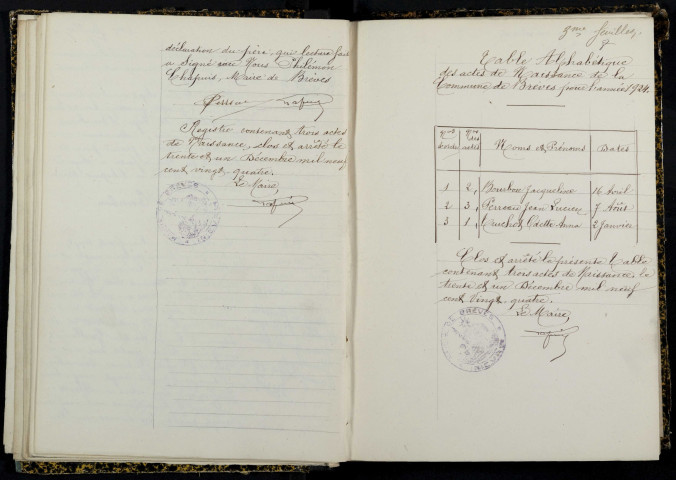 déclaration du père, qui lecture faite
a signé avec Nous Philémon
Chapuis, Maire de Brèves
Perreau
Registre contenant trois actes
de Naissance, clos et arrêté le
trente et un Décembre mil neuf
cent vingt quatre.
Le Maire
8me feuillet
Table Alphabétique
des actes de Naissance de la
Commune de Brèves pour l'année 1924.
Nos d'ordre Nos des actes Noms et Prénoms Dates
1 2 Bourbon Jacqueline 16 Avril
2 3 Perreau Jean Lucien 7 Août
3 1 Truchot Odette Anna 2 Janvier
Clos et arrêté la présente Table
contenant trois actes de Naissance, le
trente et un Décembre mil neuf
cent vingt quatre.
Le Maire